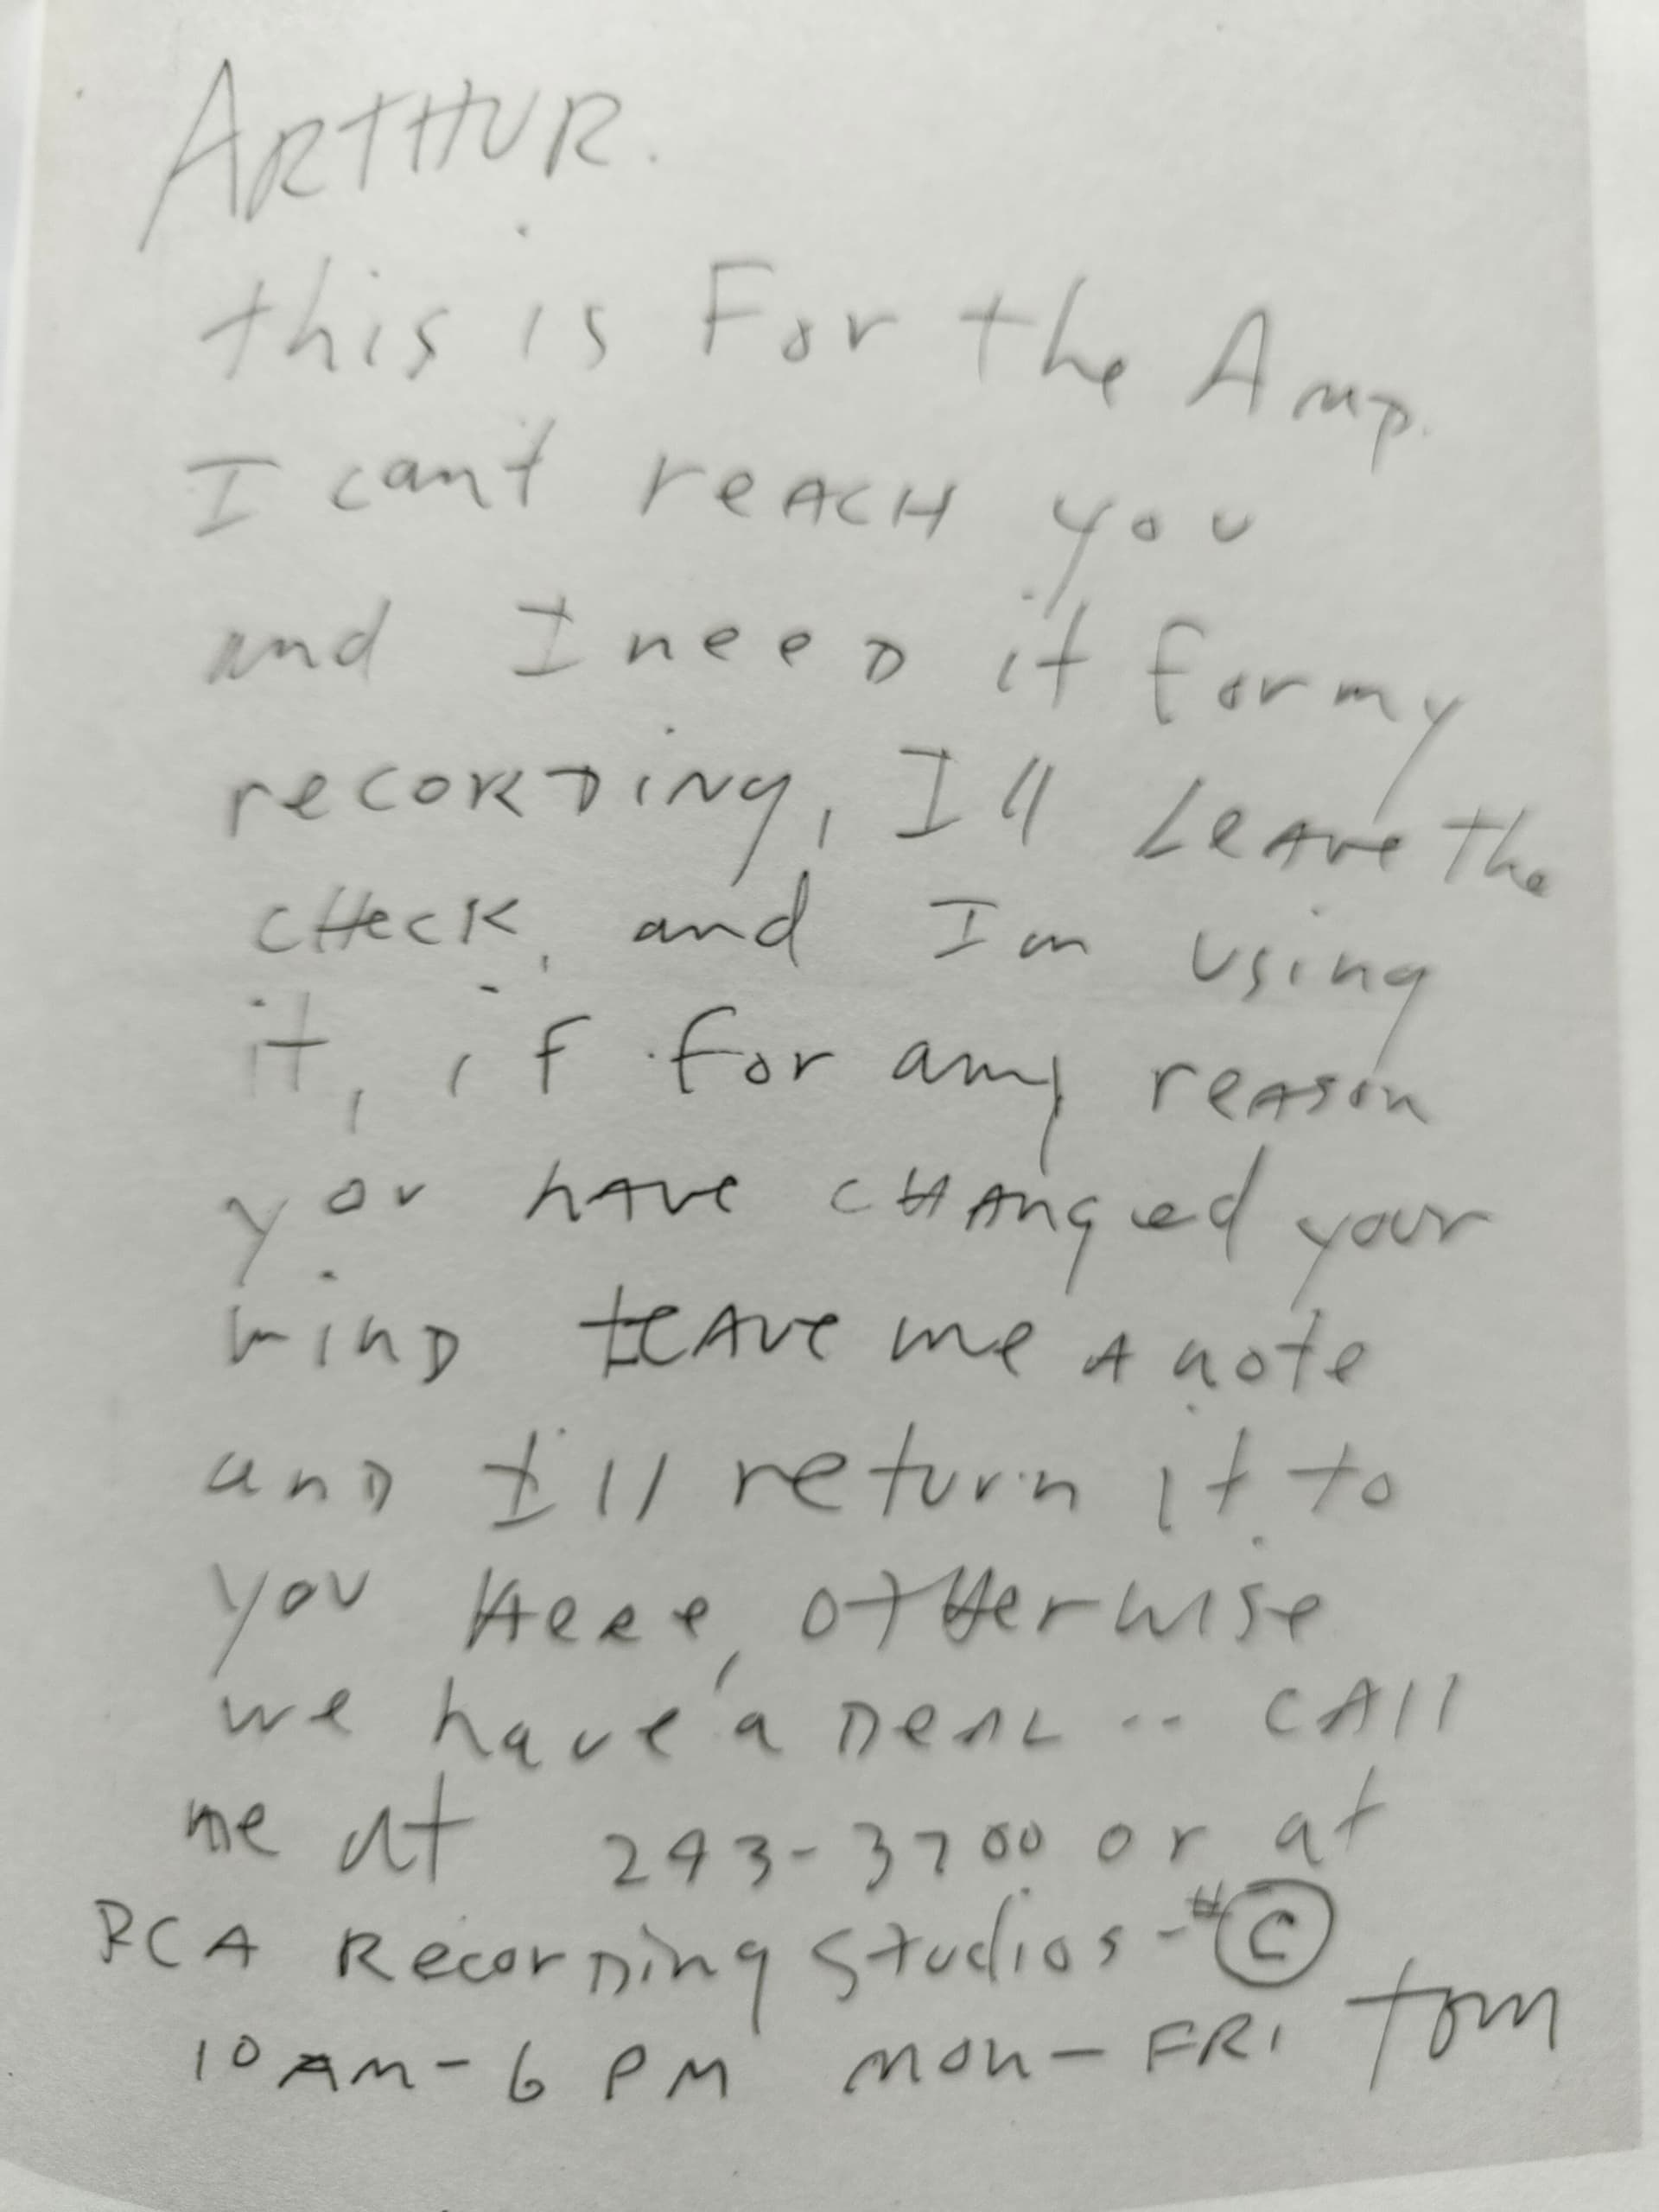 ARTHUR.
this is For the Amp.
I can't reACH you
and I neeD it for my
recorDiNg, I'll LeAve the
cHecK, and Im using
it, if for any reason
you hAve cHAnged your
minD LEAve me A note
anD I'll return it to
you Here, otHerwise
we have a DeAL -- CAll
me at 243-3700 or at
RCA RecorDing Studios - #C
10 AM - 6 PM mon - FRI tom